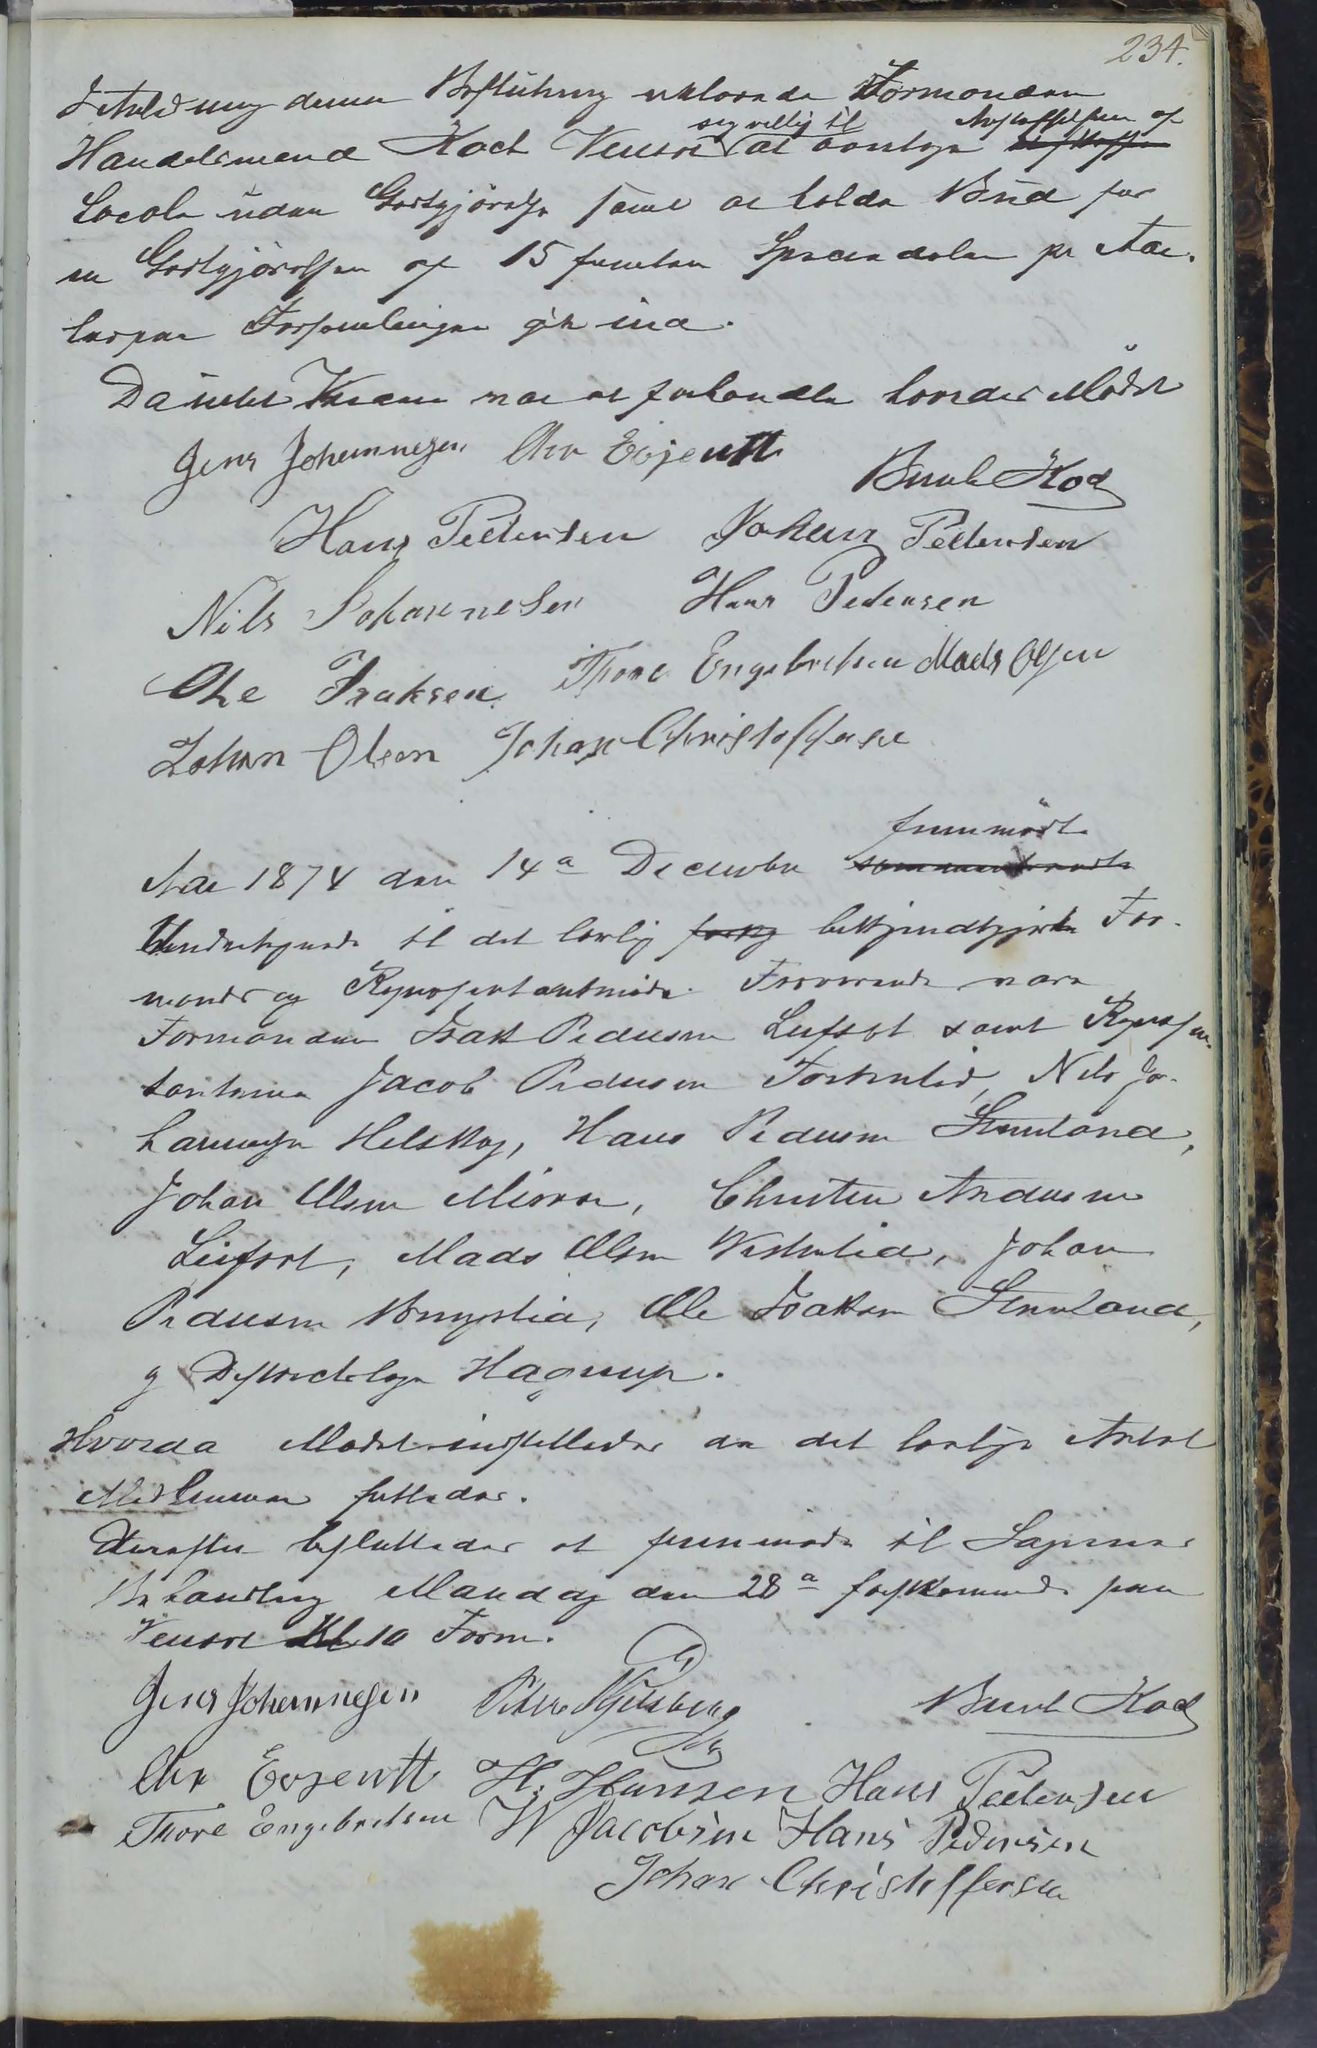 234.
I Anledning denne Beslutning erklærede Formanden
sig villig til Anskaffelsen af
Handelsmand Koch Vensæt at overtage
Locale uden Godtgjørelse samt at holde Bud for
en Godtgjørelsen af 15 femten Speciedaler pr Aar.
hvorpaa Forsamlingen gik ind.
Da intet Videre var at forhandle hævedes Mødet
Jens Johannesen Chr Evjenth
Bernh Koch
Hans Pedersen Johan Pedersen
Nils Johannesen Hans Pedersen
Ole Isaksen Thore Engebretsen Mads Olsen
Johan Olsen Johan Christoffersen
fremmødte
Aar 1874 den 14de December
Undertegnede til det lovlig bekjendtgjorte For-
mands og Repræsentantmøde. Fraværende vare
Formanden Isak Pedersen Leifset samt Repræsen-
tanterne Jacob Pedersen Forsenlid, Nils Jo-
hannesen Helskog, Hans Pedersen Grønland,
Johan Olsen Misvær, Christen Andersen
Leifset, Mads Olsen Vesterlid, Johan
Pedersen, Ole Isaksen Grønland,
g Distriktslæge Hagerup.
Hvorda Mødet indstilledes da det lovlige Antal
Medlemmer fattedes.
Derefter besluttedes at fremmøde til Sagernes
Behandling Mandag den 28de førstkommende paa
Vensæt Kl 10 Form.
Jens Johannesen Peder Kjelsberg Bernh Koch
Chr Evjenth H. Hansen Hans Pedersen
Thore Engebretsen W Jacobsen Hans Pedersen
Johan Christoffersen